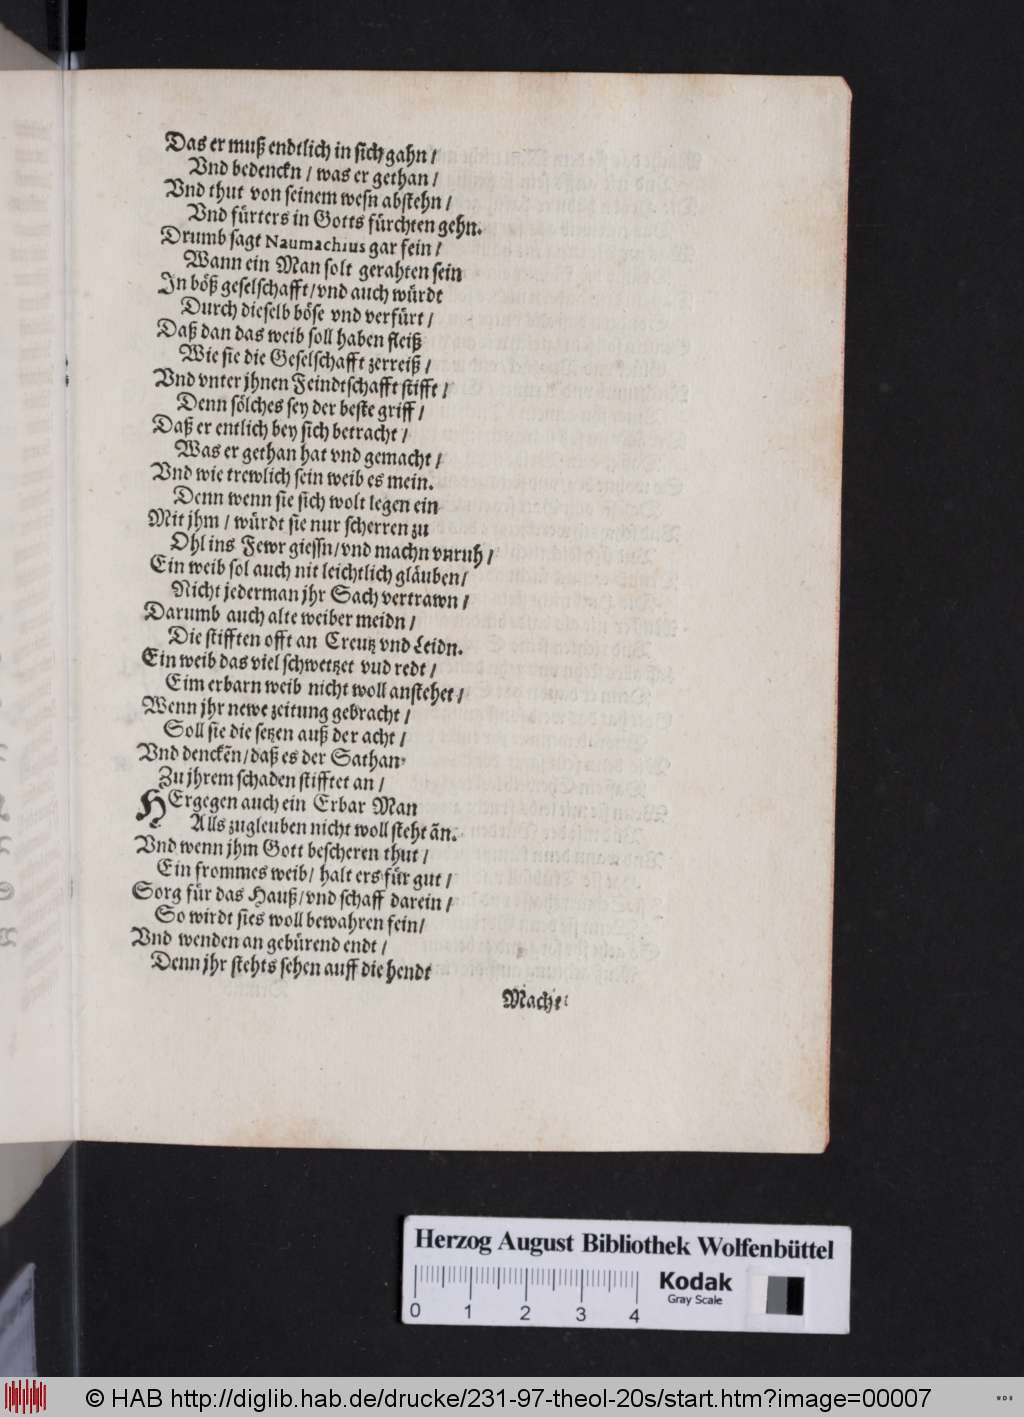 Das er muß endtlich in sich gahn /
Vnd bedenckn / was er gethan /
Vnd thut von seinem wesn abstehn /
Vnd fürters in Gotts fürchten gehn.
Drumb sagt Naumachius gar fein /
Wann ein Man solt gerahten sein
In böß geselschafft / vnd auch würdt
Durch dieselb böse vnd verfürt /
Daß dan das weib soll haben fleiß
Wie sie die Geselschafft zerreiß /
Vnd vnter jhnen Feindtschafft stifft /
Denn sölches sey der beste griff /
Daß er entlich bey sich betracht /
Was er gethan hat vnd gemacht /
Vnd wie trewlich sein weib es mein.
Denn wenn sie sich wolt legen ein
Mit jhm / würdt sie nur scherren zu
Ohl ins Fewr giessn / vnd machn vnruh /
Ein weib sol auch nit leichtlich gläuben /
Nicht jederman jhr Sach vertrawn /
Darumb auch alte weiber meidn /
Die stifften offt an Creutz vnd Leidn.
Ein weib das viel schwetzet vud redt /
Eim erbarn weib nicht woll anstehet /
Wenn jhr newe zeitung gebracht /
Soll sie die setzen auß der acht /
Vnd denckẽn / daß es der Sathan
Zu jhrem schaden stifftet an /
HErgegen auch ein Erbar Man
Alls zugleuben nicht woll steht ãn.
Vnd wenn jhm Gott bescheren thut /
Ein frommes weib / halt ers für gut /
Sorg für das Hauß / vnd schaff darein /
So wirdt sies woll bewahren fein /
Vnd wenden an gebürend endt /
Denn jhr stehts sehen auff die hendt
Macht
Herzog August Bibliothek Wolfenbüttel
0 1 2 3 4
Kodak
Gray Scale
© HAB http://diglib.hab.de/drucke/231-97-theol-20s/start.htm?image=00007